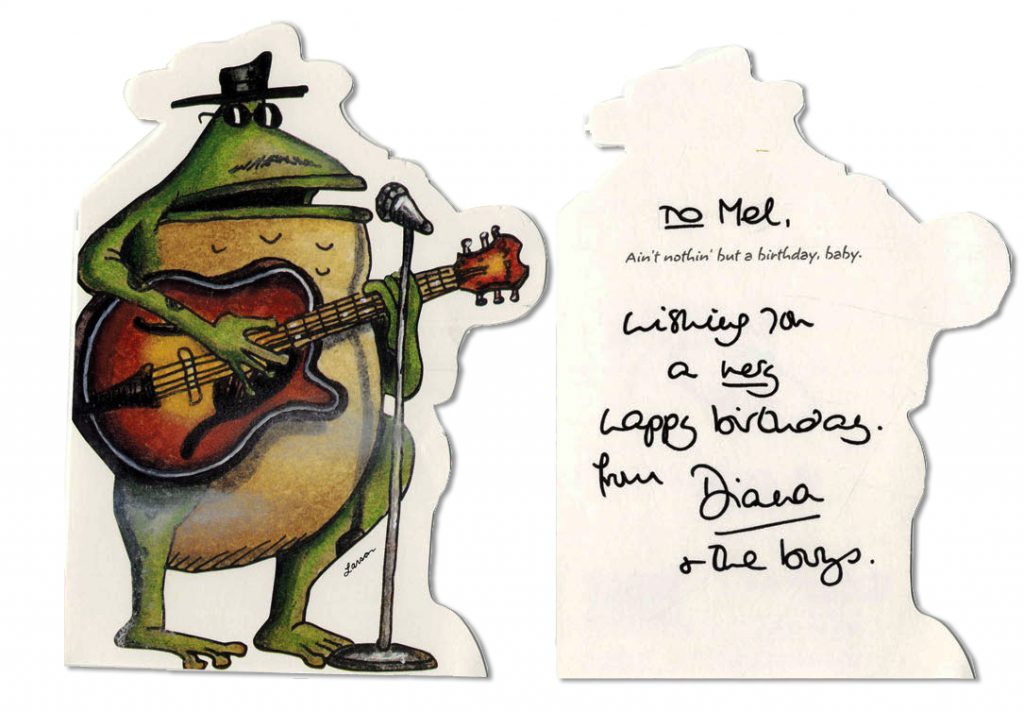 Larson
To Mel,
Ain't nothin' but a birthday, baby.
wishing you
a very
happy birthday.
from Diana
& the boys.